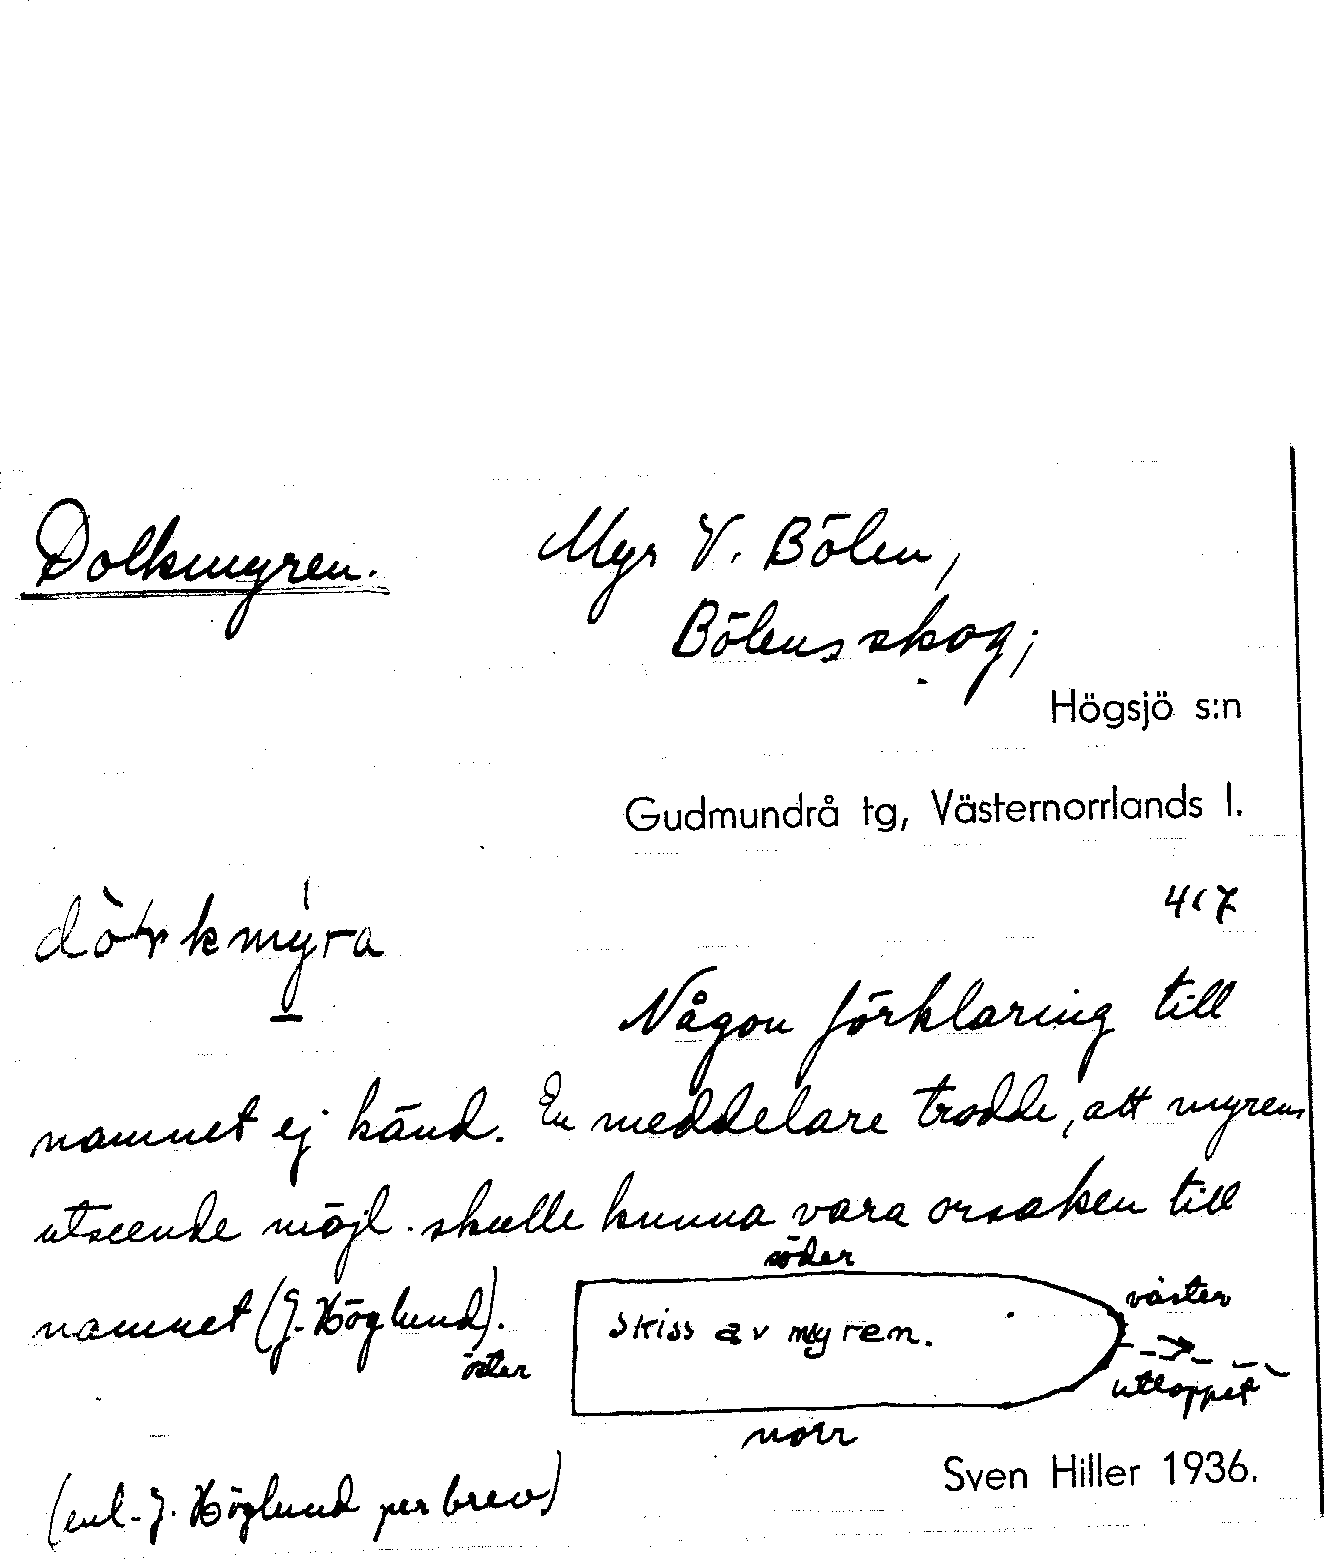 Dolkmyren. Myr V. Bölen,
Bölens skog;
Högsjö s:n
Gudmundrå tg, Västernorrlands l.
417
Någon förklaring till
namnet ej känd. En meddelare trodde, att myrens
utseende möjl. skulle kunna vara orsaken till
söder
namnet (J. Höglund).
väster
skiss av myren.
öster
utloppet
norr
Sven Hiller 1936.
(enl. J. Höglund per brev)